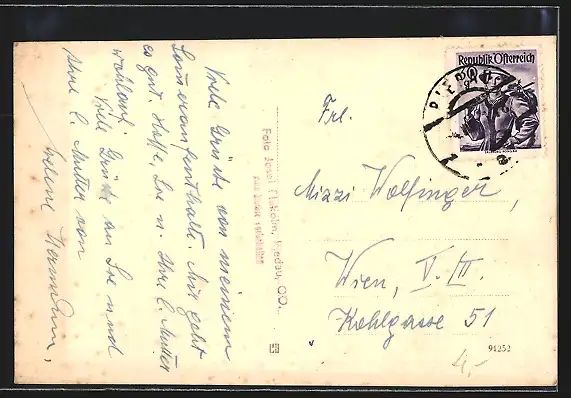 Viele Grüße von meinem
Sommeraufenthalt. Mir geht
es gut. Hoffe, Sie u. Ihre l. Mutter
wohlauf.
Viele Grüße an Sie und
Ihre l. Mutter von
Helene Hermann,
Foto Josef
Republik Österreich
Frl.
Mizzi Wolfinger,
Wien, V.
Kohlgasse 51
91252
4,-